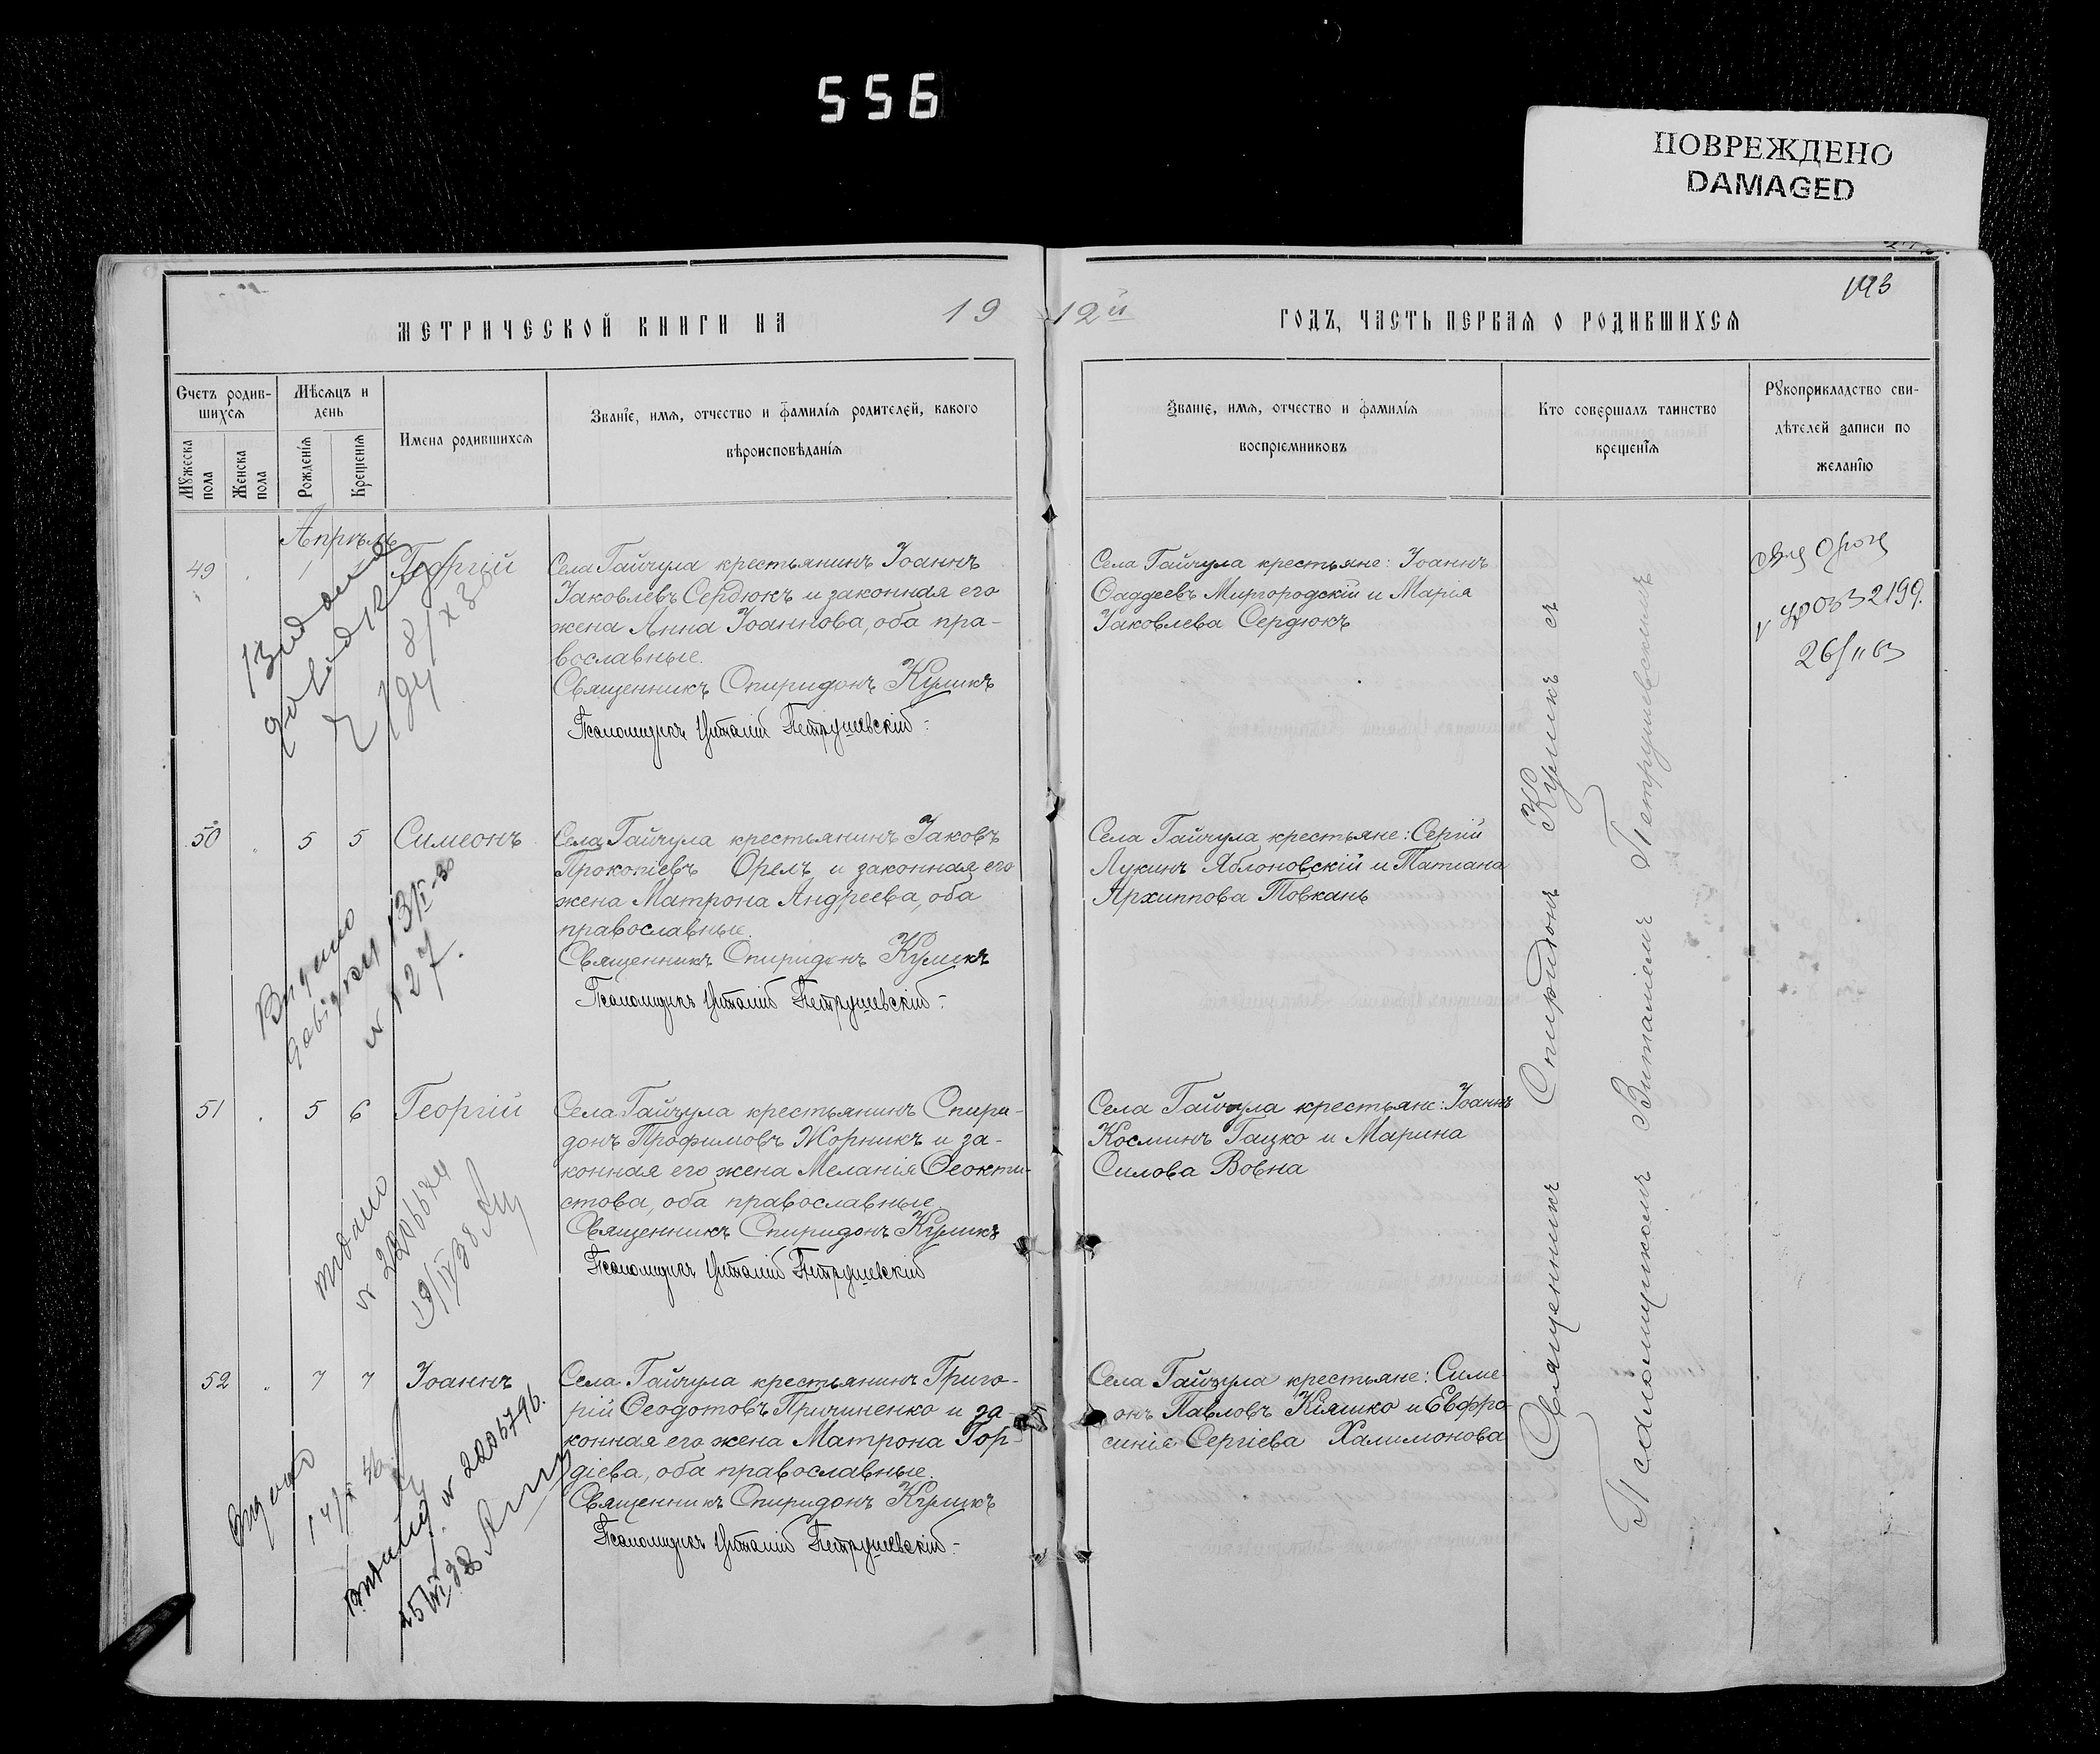 556
ПОВРЕЖДЕНО
DAMAGED
193
МЕТРИЧЕСКОЙ КНИГИ НА 19
12й ГОДЪ, ЧАСТЬ ПЕРВАЯ О РОДИВШИХСЯ
Счетъ родив-
шихся
Мужеска пола
Женска пола
Мѣсяцъ и
день
Рожденія
Крещенія
Имена родившихся
Званіе, имя, отчество и фамилія родителей, какого
вѣроисповѣданія
Званіе, имя, отчество и фамилія
воспріемниковъ
Кто совершалъ таинство
крещенія
Рукоприкладство сви-
дѣтелей записи по
желанію
Апрѣль
49 1 Георгій
Села Гайчула крестьянинъ Іоаннъ
Іаковлевъ Сердюкъ и законная его
жена Анна Іоаннова, оба пра-
вославные.
Священникъ Спиридонъ Куликъ
Псаломщикъ Виталій Петрушевскій
Села Гайчула крестьяне: Іоаннъ
Фаддеевъ Миргородскій и Марія
Іаковлева Сердюкъ
2199.
50 5 5 Симеонъ
Села Гайчула крестьянинъ Іаковъ
Прокопіевъ Орелъ и законная его
жена Матрона Андреева, оба
православные.
Священникъ Спиридонъ Куликъ
Псаломщикъ Виталій Петрушевскій
Села Гайчула крестьяне: Сергій
Лукинъ Яблоновскій и Татіана
Архиппова Товкань
Видано
довідку
№ 127
51 5 6 Георгій
Села Гайчула крестьянинъ Спири-
донъ Трофимовъ Жорникъ и за-
конная его жена Меланія Феокти-
стова, оба православные
Священникъ Спиридонъ Куликъ
Псаломщикъ Виталій Петрушевскій
Села Гайчула крестьяне: Іоаннъ
Косминъ Гацко и Марина
Силова Вовна
19/IV 38
52 7 7 Іоаннъ
Села Гайчула крестьянинъ Григо-
рій Феодотовъ Причиненко и за-
конная его жена Матрона Гор-
діева, оба православные.
Священникъ Спиридонъ Куликъ
Псаломщикъ Виталій Петрушевскій
Села Гайчула крестьяне: Симе-
онъ Павловъ Кіяшко и Евфро-
синія Сергіева Халимонова
№ 2206796.
Священникъ Спиридонъ Куликъ съ
Псаломщикомъ Виталіемъ Петрушевскимъ